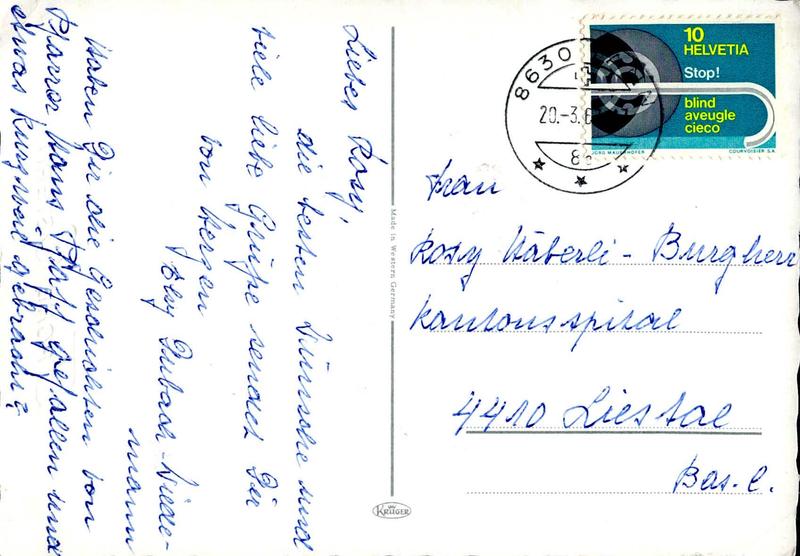 Liebes Rosy,
die besten Wünsche und
viele liebe Grüsse sendet Dir
von Herzen
Elsy Dubach-Wiede-
mann
Haben Dir die Geschichten von
Pfarrer Hans gefallen und
etwas Kurzweil gebracht?
Made in Western Germany
KRÜGER
8630
20.-3.
10
HELVETIA
Stop!
blind
aveugle
cieco
JÖRG MAUERHOFER COURVOISIER S.A.
Frau
Rosy Häberli-Burgherr
Kantonsspital
4410 Liestal
Bas.l.